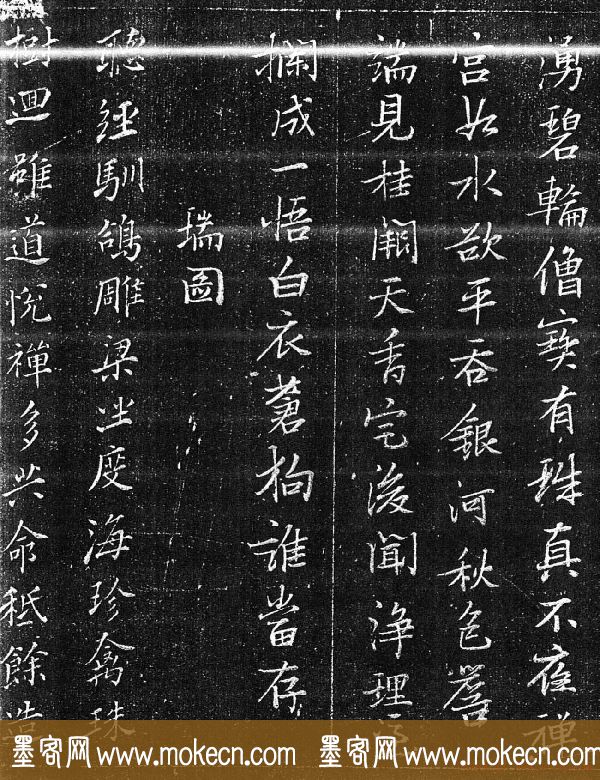 湧碧輪僧寶有珠真不夜禪
宫如水欲平吞銀河秋色簷
端見桂闕天香定後聞淨理
摑成一悟白衣蒼狗誰當存
瑞圖
聽經馴鴿雕梁坐度海珍禽珠
樹迴雖道悅禪多共命秪餘
墨客网 www.mokecn.com 墨客网 www.mokecn.com